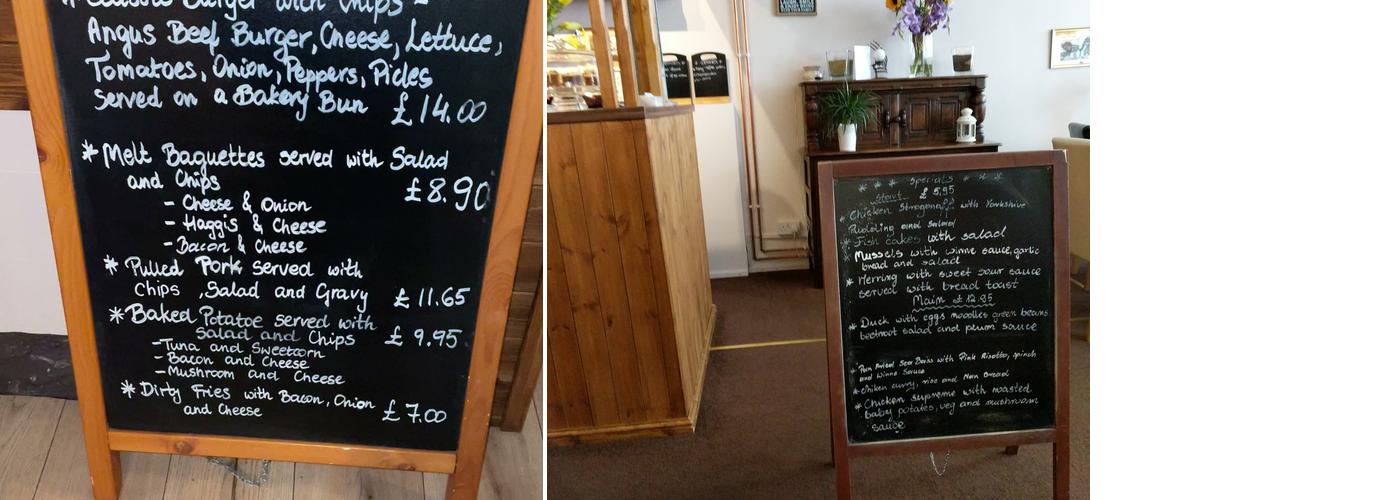 Classic Burger with Chips -
Angus Beef Burger, Cheese, Lettuce,
Tomatoes, Onion, Peppers, Picles
served on a Bakery Bun £14.00
* Melt Baguettes served with Salad
and Chips £8.90
- Cheese & Onion
- Haggis & Cheese
- Bacon & Cheese
* Pulled Pork served with
Chips, Salad and Gravy £11.65
* Baked Potatoe served with
Salad and Chips £9.95
- Tuna and Sweetcorn
- Bacon and Cheese
- Mushroom and Cheese
* Dirty Fries with Bacon, Onion
and Cheese £7.00
* * * Specials * * *
Start £5,95
* Chicken with Yorkshire
Pudding and
* Fish cakes with salad
Mussels with winne sauce, garlic
bread and salad
* Herring with sweet sour sauce
served with bread toast
Main £12.95
* Duck with eggs noodles green beans
beetroot salad and plum sauce
* Pan Fried Sea Bass with Pink Risotto, spinch
and Winne Sauce
* Chiken curry, rice and Nan Bread
* Chicken supreme with roasted
baby potates, veg and mushroom
sauce